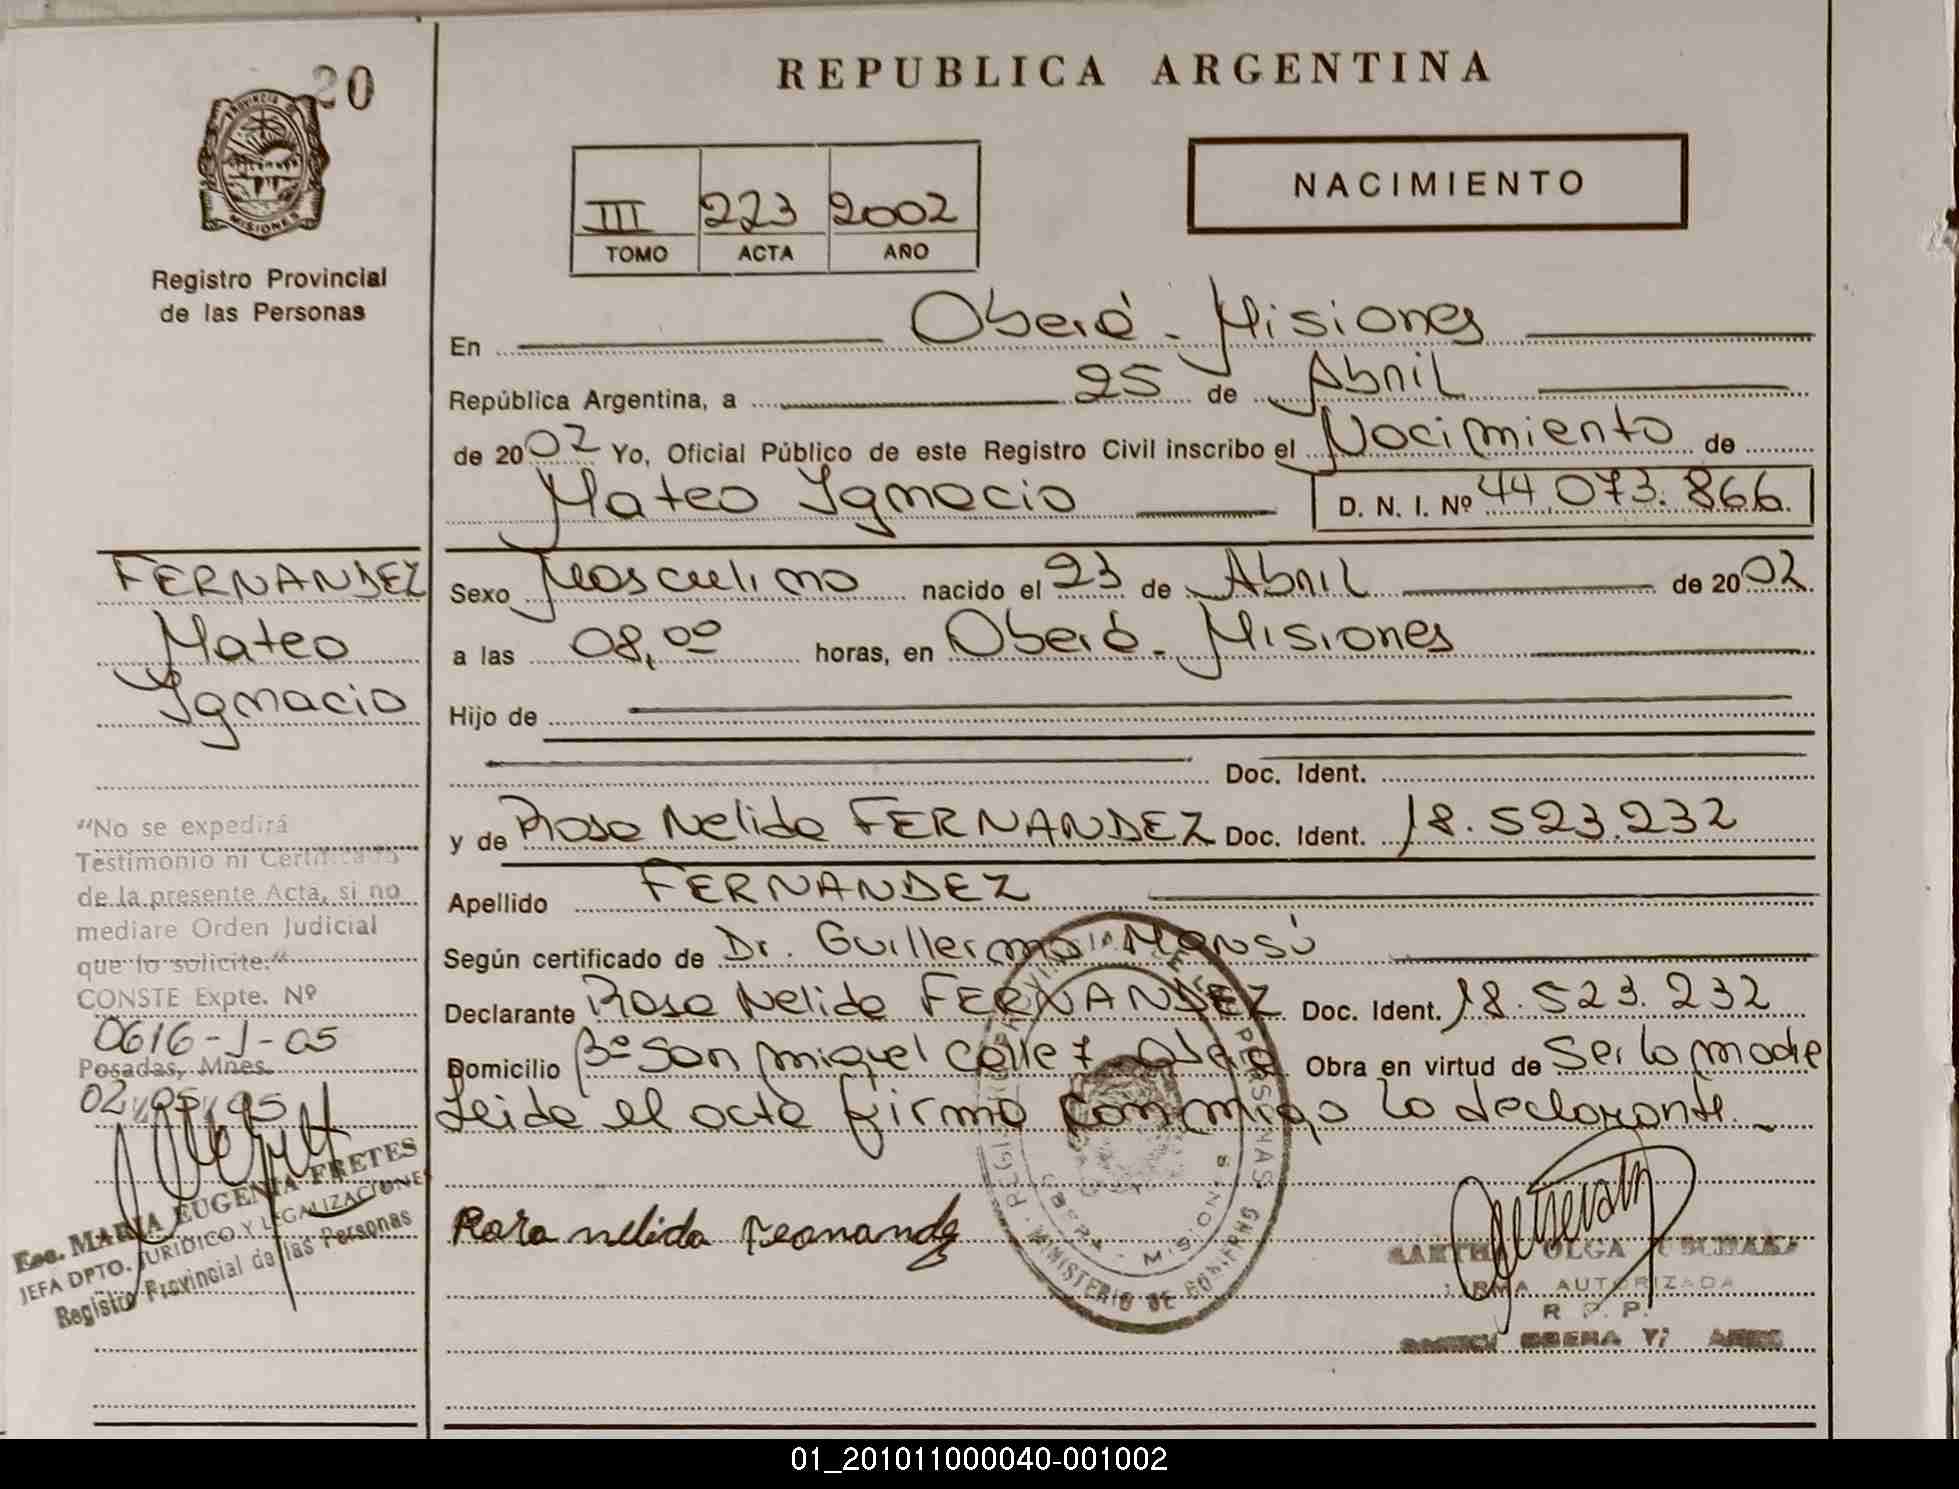 20
PROVINCIA DE
MISIONES
Registro Provincial
de las Personas
REPUBLICA ARGENTINA
III 223 2002
TOMO ACTA AÑO
NACIMIENTO
En Oberá - Misiones
República Argentina, a 25 de Abril
de 2002 Yo, Oficial Público de este Registro Civil inscribo el Nacimiento de
Mateo Ignacio D. N. I. Nº 44.073.866.
FERNANDEZ
Mateo
Ignacio
Sexo Masculino nacido el 23 de Abril de 2002
a las 08,00 horas, en Oberá - Misiones
Hijo de
Doc. Ident.
y de Rosa Nelida FERNANDEZ Doc. Ident. 18.523.232
Apellido FERNANDEZ
Según certificado de Dr. Guillermo
Declarante Rosa Nelida FERNANDEZ Doc. Ident. 18.523.232
Domicilio Bº San Miguel Calle 7 Oberá Obra en virtud de Ser la madre
Leida el acta firma conmigo la declarante.
"No se expedirá
Testimonio ni Certificado
de la presente Acta, si no
mediare Orden Judicial
que lo solicite."
CONSTE Expte. Nº
0616-J-05
Posadas, Mnes.
02/05/05
Esc. MARIA EUGENIA FRETES
JEFA DPTO. JURIDICO Y LEGALIZACIONES
Registro Provincial de las Personas
Rosa nelida Fernandez
MINISTERIO DE GOBIERNO
MISIONES
OLGA
FIRMA AUTORIZADA
R. P. P.
OBERA
01_201011000040-001002